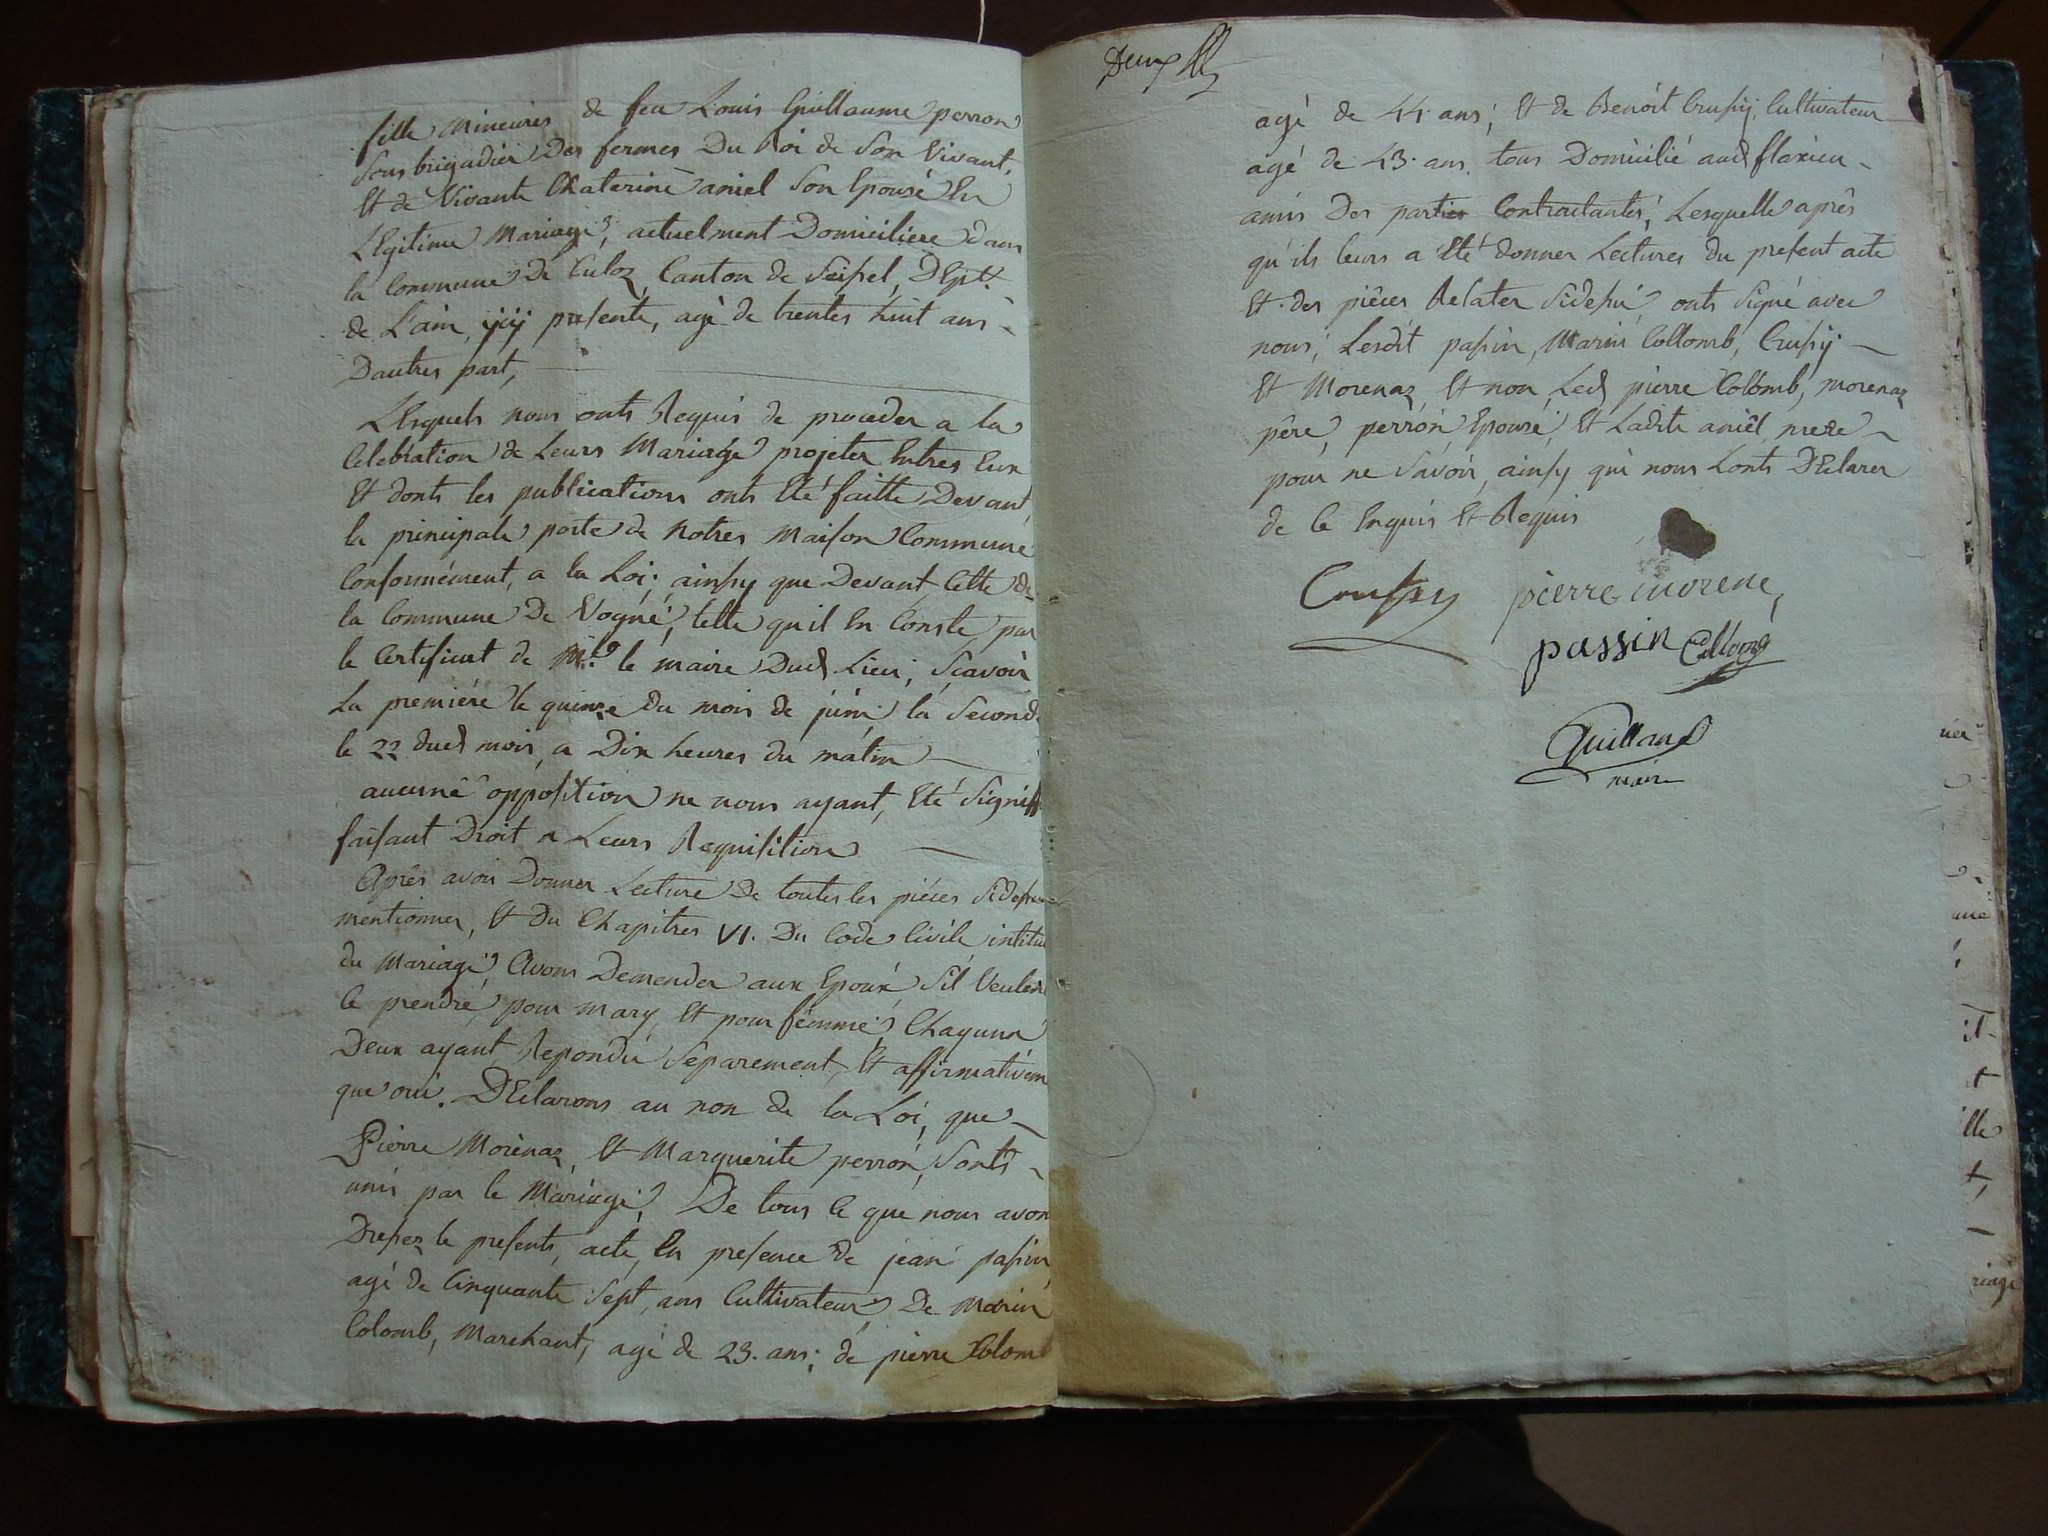 fille Mineures de feu Louis Guillaume perron
Sous brigadier Des fermes Du Roi de Son Vivant,
Et de Vivante Chaterine aniel Son Epouse En
LEgitime Mariage, actuelment Domiciliere dans
la Commune De Culoz, Canton de Seissel, DEpt.
de L'ain, ycy presente, agé de trentes huit ans -
Dautres part,
LEsquels nous onts Requis de proceder a la
Celebration de Leurs Mariage projeter Entres Eux
Et donts les publications onts Eté faitte Devant
la principale porte de Notres Maison Commune
Conformément, a la Loi; ainsy que Devant, Celle de
la Commune De Vogné, telle qu'il En Conste, par
le Certificat de Mr. le maire Dud Lieu; Scavoir
La premiére le quinze du mois de juin; la Seconde
le 22 dud mois, a Dix heures du matin -
aucune opposition ne nous ayant, Eté Signiff
faisant Droit a Leurs Requisition -
Après avoir Donner Lecture De toutes les piéces Sidessus
mentionner, Et du Chapitres VI. Du Code Civile intitu
du Mariage, Avons Demender aux Epoux, Sil Veulent
Ce prendre pour mary, Et pour femme, Chaquun
Deux ayant Repondu Separement, Et affirmativem
que oui. DEclarons au non de la Loi, que -
Pierre Morénaz, Et Marguerite perron, Sonts -
unis par le Mariage, De tous Ce que nous avon
Dressez le presents, acte, En presence de jean passin
agé de Cinquante Sept, ans Cultivateur, De Marin
Colomb, Marchant, agé de 23. ans; de pierre Colomb
Deux
agé de 44 ans; Et de Benoit Crussy, Cultivateur
agé de 43. ans, tous Domicilié aud flaxieu -
amis Des parties Contractantes; Lesquelle après
qu'ils leurs a Eté donner Lectures du present acte
Et des pièces Relater Sidessu, onts Signé avec
nous; Lesdit passin, Marin Collomb, Crussy -
Et Morenaz, Et non Led pierre Colomb, morenaz
pére, perron Epouse, Et Ladite aniel mere -
pour ne Savoir, ainsy qui nous Lonts DEclarer
de Ce Enquis Et Requis
Crussy pierre morene,
passin Collomb
Guilland
maire